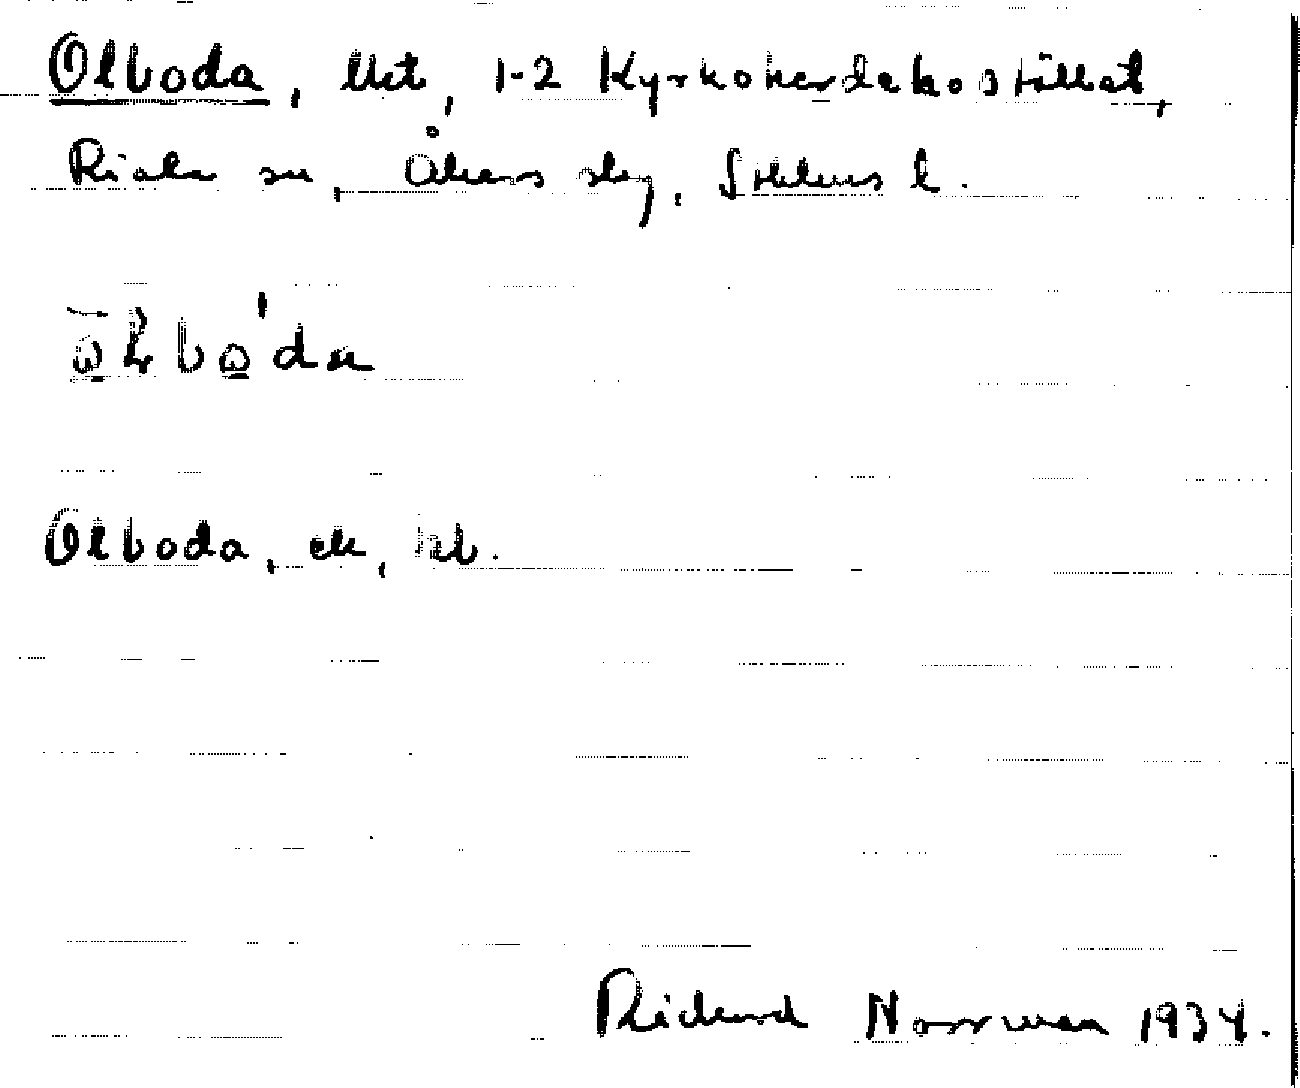 Olboda, Utt, 1-2 Kyrkoherdebostället,
Riala sn, Åkers skg, Sthlms l.
Olboda, ek, kb.
Rickard Norrman 1934.